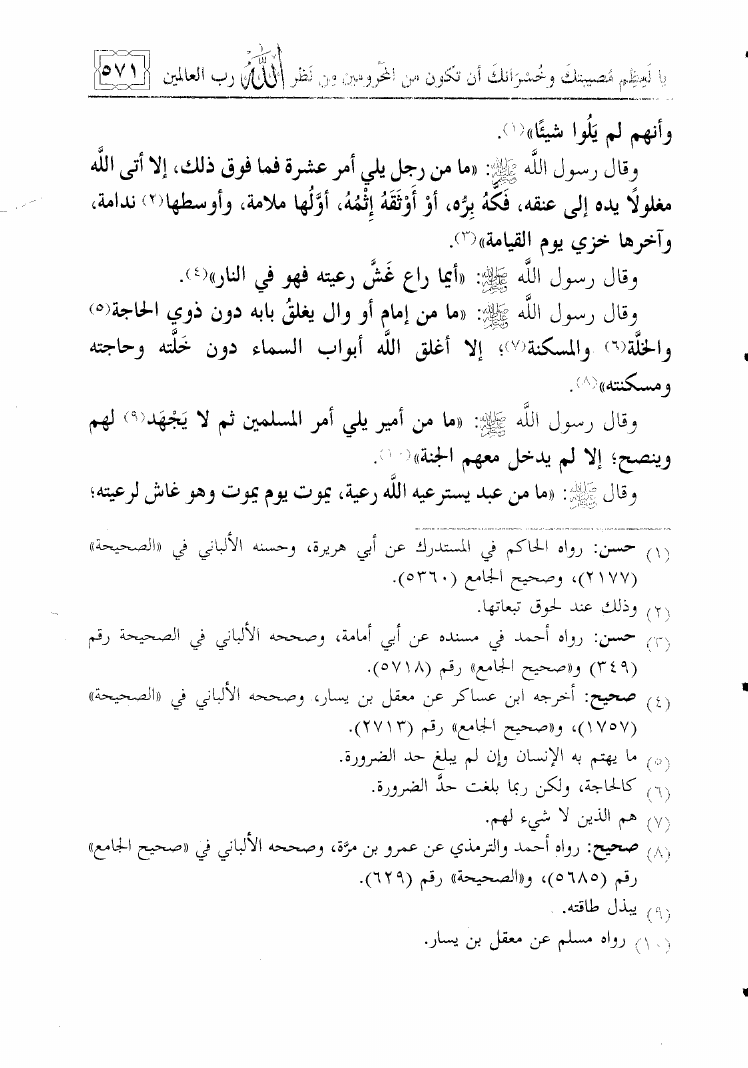 يا لَعِظَم مُصيبتكَ وخُسْرَانكَ أن تكون من المحرومين من نَظَر اللَّه رب العالمين ٥٧١
وأنهم لم يَلُوا شيئًا»(١).
وقال رسول اللَّه ﷺ: «ما من رجل يلي أمر عشرة فما فوق ذلك، إلا أتى اللَّه
مغلولاً يده إلى عنقه، فَكَّهُ بِرُّه، أوْ أَوْثَقَهُ إثْمُهُ، أوَّلُها ملامة، وأوسطها(٢) ندامة،
وآخرها خزي يوم القيامة»(٣).
وقال رسول اللَّه ﷺ: «أيما راع غَشَّ رعيته فهو في النار»(٤).
وقال رسول اللَّه ﷺ: «ما من إمام أو وال يغلقُ بابه دون ذوي الحاجة(٥)
والخلَّة(٦) والمسكنة(٧)؛ إلا أغلق اللَّه أبواب السماء دون خَلَّته وحاجته
ومسكنته»(٨).
وقال رسول اللَّه ﷺ: «ما من أمير يلي أمر المسلمين ثم لا يَجْهَد(٩) لهم
وينصح؛ إلا لم يدخل معهم الجنة»(١٠).
وقال ﷺ: «ما من عبد يسترعيه اللَّه رعية، يموت يوم يموت وهو غاش لرعيته؛
(١) حسن: رواه الحاكم في المستدرك عن أبي هريرة، وحسنه الألباني في «الصحيحة»
(٢١٧٧)، وصحيح الجامع (٥٣٦٠).
(٢) وذلك عند لحوق تبعاتها.
(٣) حسن: رواه أحمد في مسنده عن أبي أمامة، وصححه الألباني في الصحيحة رقم
(٣٤٩) و«صحيح الجامع» رقم (٥٧١٨).
(٤) صحيح: أخرجه ابن عساكر عن معقل بن يسار، وصححه الألباني في «الصحيحة»
(١٧٥٧)، و«صحيح الجامع» رقم (٢٧١٣).
(٥) ما يهتم به الإنسان وإن لم يبلغ حد الضرورة.
(٦) كالحاجة، ولكن ربما بلغت حدَّ الضرورة.
(٧) هم الذين لا شيء لهم.
(٨) صحيح: رواه أحمد والترمذي عن عمرو بن مرَّة، وصححه الألباني في «صحيح الجامع»
رقم (٥٦٨٥)، و«الصحيحة» رقم (٦٢٩).
(٩) يبذل طاقته.
(١٠) رواه مسلم عن معقل بن يسار.